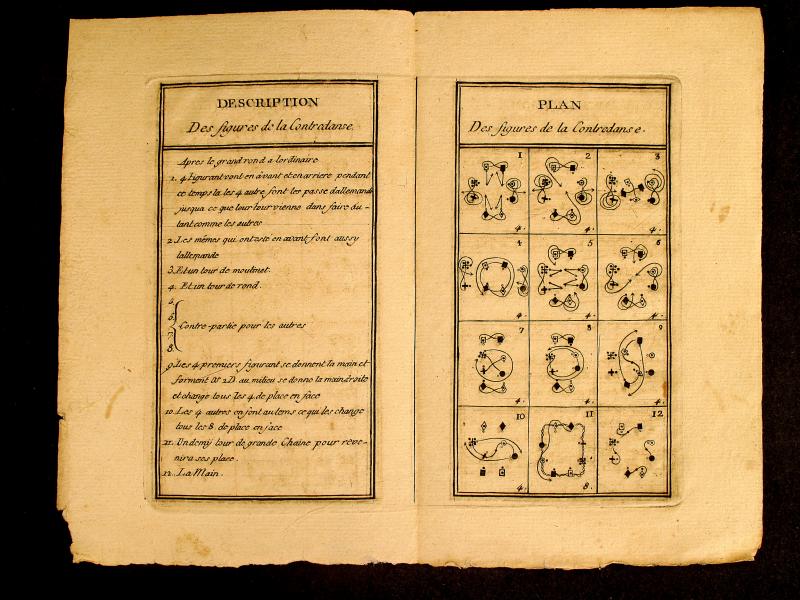 DESCRIPTION
Des figures de la Contredanse.
Apres le grand rond a lordinaire
1. 4 figurant vont en avant et en arriere pendant
ce temps la les 4 autre font les passe dallemand
jusqua ce que leur tour vienne dans faire du-
tant comme les autres
2. Les mêmes qui ont esté en avant font aussy
lallemande
3. Et un tour de moulinet.
4. Et un tour de rond.
5.
6.
7.
8.
Contre-partie pour les autres
9. Les 4 premiers figurant se donnent la main et
forment au milieu se donne la main droite
et change tous les 4. de place en face
10. Les 4 autres en font autems ce qui les change
tous les 8. de place en face
11. Un demy tour de grande Chaine pour reve-
nir a ses plase.
12. La Main.
PLAN
Des figures de la Contredanse.
1 2 3
4. 4. 4.
4 5 6
4. 4. 4.
7 8 9
4. 4. 4.
10 11 12
4. 8.